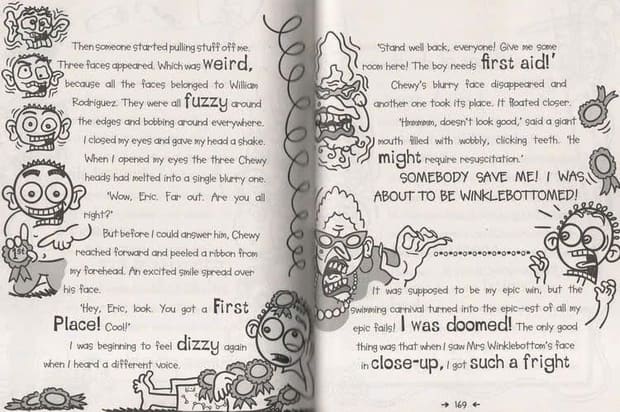 Then someone started pulling stuff off me.
Three faces appeared. Which was weird,
because all the faces belonged to William
Rodriguez. They were all fuzzy around
the edges and bobbing around everywhere.
I closed my eyes and gave my head a shake.
When I opened my eyes the three Chewy
heads had melted into a single blurry one.
'Wow, Eric. Far out. Are you all
right?'
But before I could answer him, Chewy
reached forward and peeled a ribbon from
my forehead. An excited smile spread over
his face.
'Hey, Eric, look. You got a First
Place! Cool!'
I was beginning to feel dizzy again
when I heard a different voice.
1st
'Stand well back, everyone! Give me some
room here! The boy needs first aid!'
Chewy's blurry face disappeared and
another one took its place. It floated closer.
'Hmmmmm, doesn't look good,' said a giant
mouth filled with wobbly, clicking teeth. 'He
might require resuscitation.'
SOMEBODY SAVE ME! I WAS
ABOUT TO BE WINKLEBOTTOMED!
It was supposed to be my epic win, but the
swimming carnival turned into the epic-est of all my
epic fails! I was doomed! The only good
thing was that when I saw Mrs Winklebottom's face
in close-up, I got such a fright
169